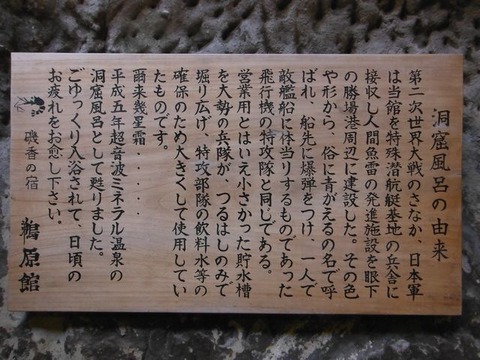 洞窟風呂の由来
第二次世界大戦のさなか、日本軍
は当館を特殊潜航艇基地の兵舎に
接収し人間魚雷の発進施設を眼下
の勝場港周辺に建設した。その色
や形から、俗に青がえるの名で呼
ばれ、船先に爆弾をつけ、一人で
敵艦船に体当りするものであった
飛行機の特攻隊と同じである。
営業用とはいえ小さかった貯水槽
を大勢の兵隊が、つるはしのみで
堀り広げ、特攻部隊の飲料水等の
確保のため大きくして使用してい
たものです。
爾来幾星霜・・・・・
平成五年超音波ミネラル温泉の
洞窟風呂として甦りました。
ごゆっくり入浴されて、日頃の
お疲れをお癒し下さい。
磯香の宿 鵜原館